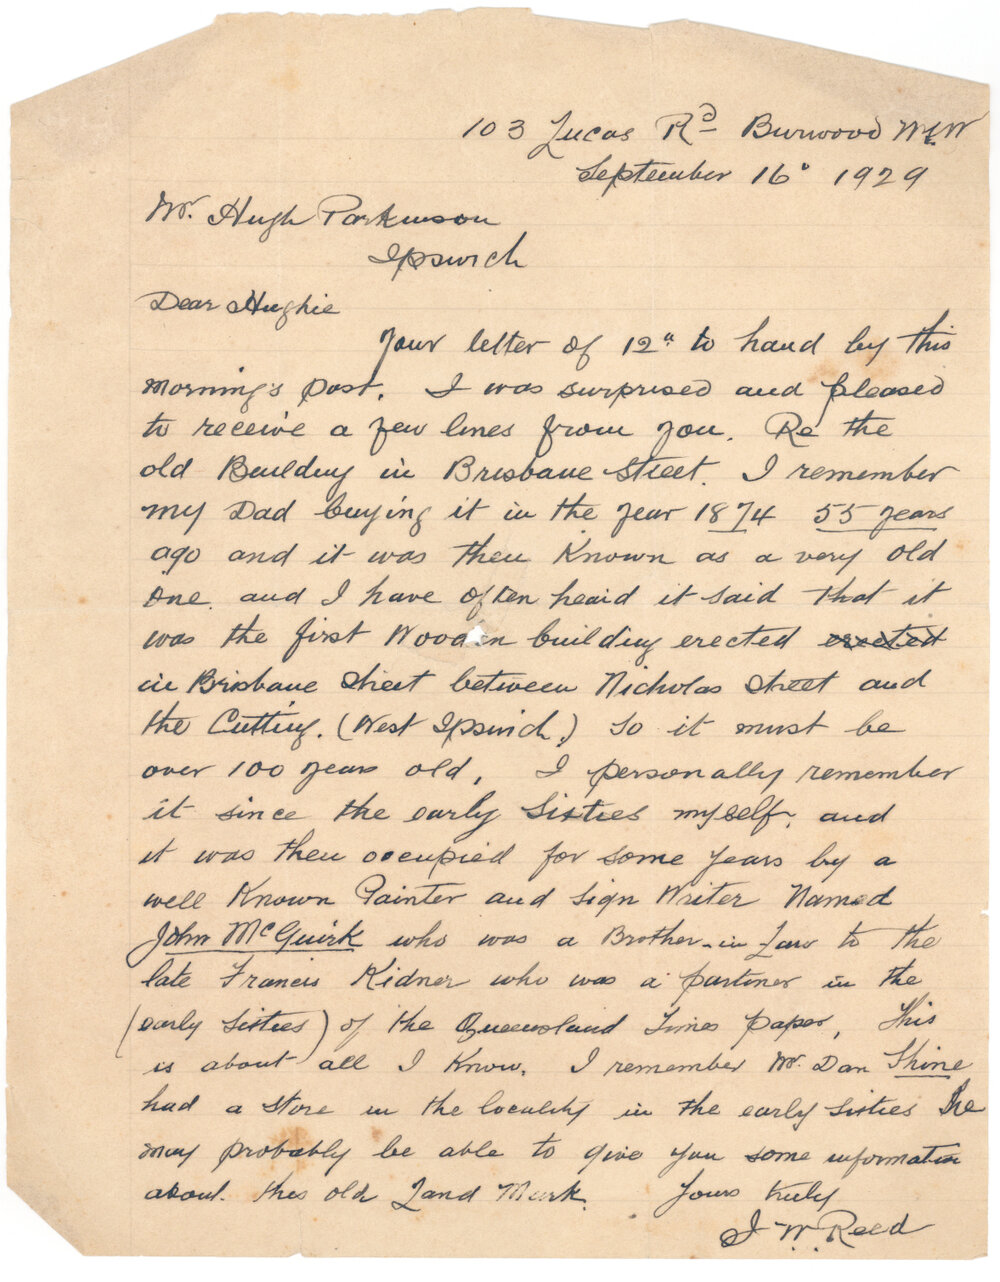 103 Lucas Rd Burwood NSW
September 16° 1929
Mr. Hugh Parkinson
Ipswich
Dear Hughie
Your letter of 12th to hand by this
morning's post. I was surprised and pleased
to receive a few lines from you. Re the
old Building in Brisbane Street. I remember
my Dad buying it in the year 1874 55 years
ago and it was then Known as a very old
one. and I have often heard it said that it
was the first Wooden building erected erected
in Brisbane Street between Nicholas Street and
the Cutting. (West Ipswich.) So it must be
over 100 years old. I personally remember
it since the early Sixties myself. and
it was then occupied for some years by a
well Known Painter and Sign Writer Named
John McGuirk who was a Brother-in-Law to the
late Francis Kidner who was a partner in the
(early Sixties) of the Queensland Times paper. This
is about all I Know. I remember Mr. Dan Shine
had a Store in the locality in the early Sixties he
may probably be able to give you some information
about this old Land Mark. Yours truly
J. W. Reed